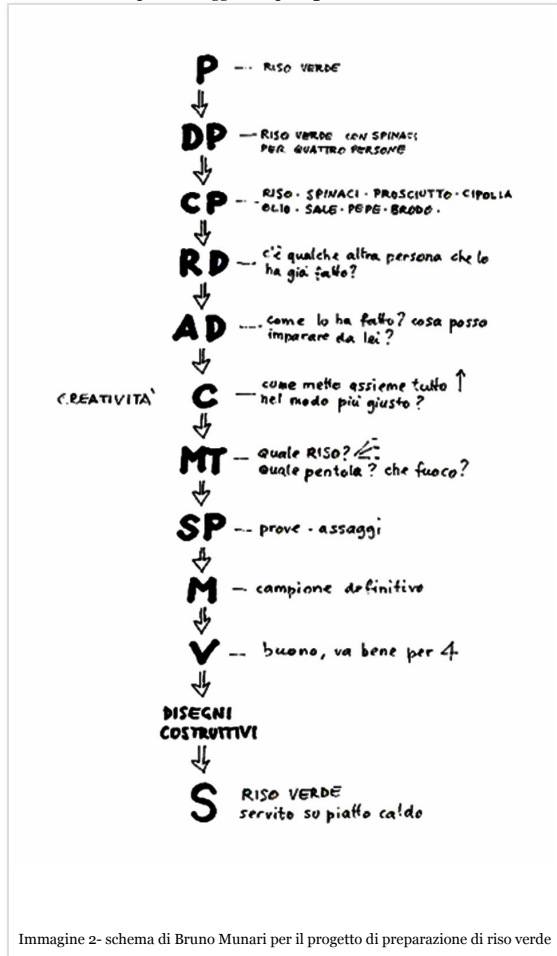 P — RISO VERDE
DP — RISO VERDE CON SPINACI
PER QUATTRO PERSONE
CP — RISO · SPINACI · PROSCIUTTO · CIPOLLA
OLIO · SALE · PEPE · BRODO ·
RD — c'è qualche altra persona che lo
ha già fatto?
AD — come lo ha fatto? cosa posso
imparare da lei?
CREATIVITA' C — come metto assieme tutto ↑
nel modo più giusto?
MT — quale RISO?
quale pentola? che fuoco?
SP — prove - assaggi
M — campione definitivo
V — buono, va bene per 4
DISEGNI
COSTRUTTIVI
S RISO VERDE
servito su piatto caldo
Immagine 2- schema di Bruno Munari per il progetto di preparazione di riso verde